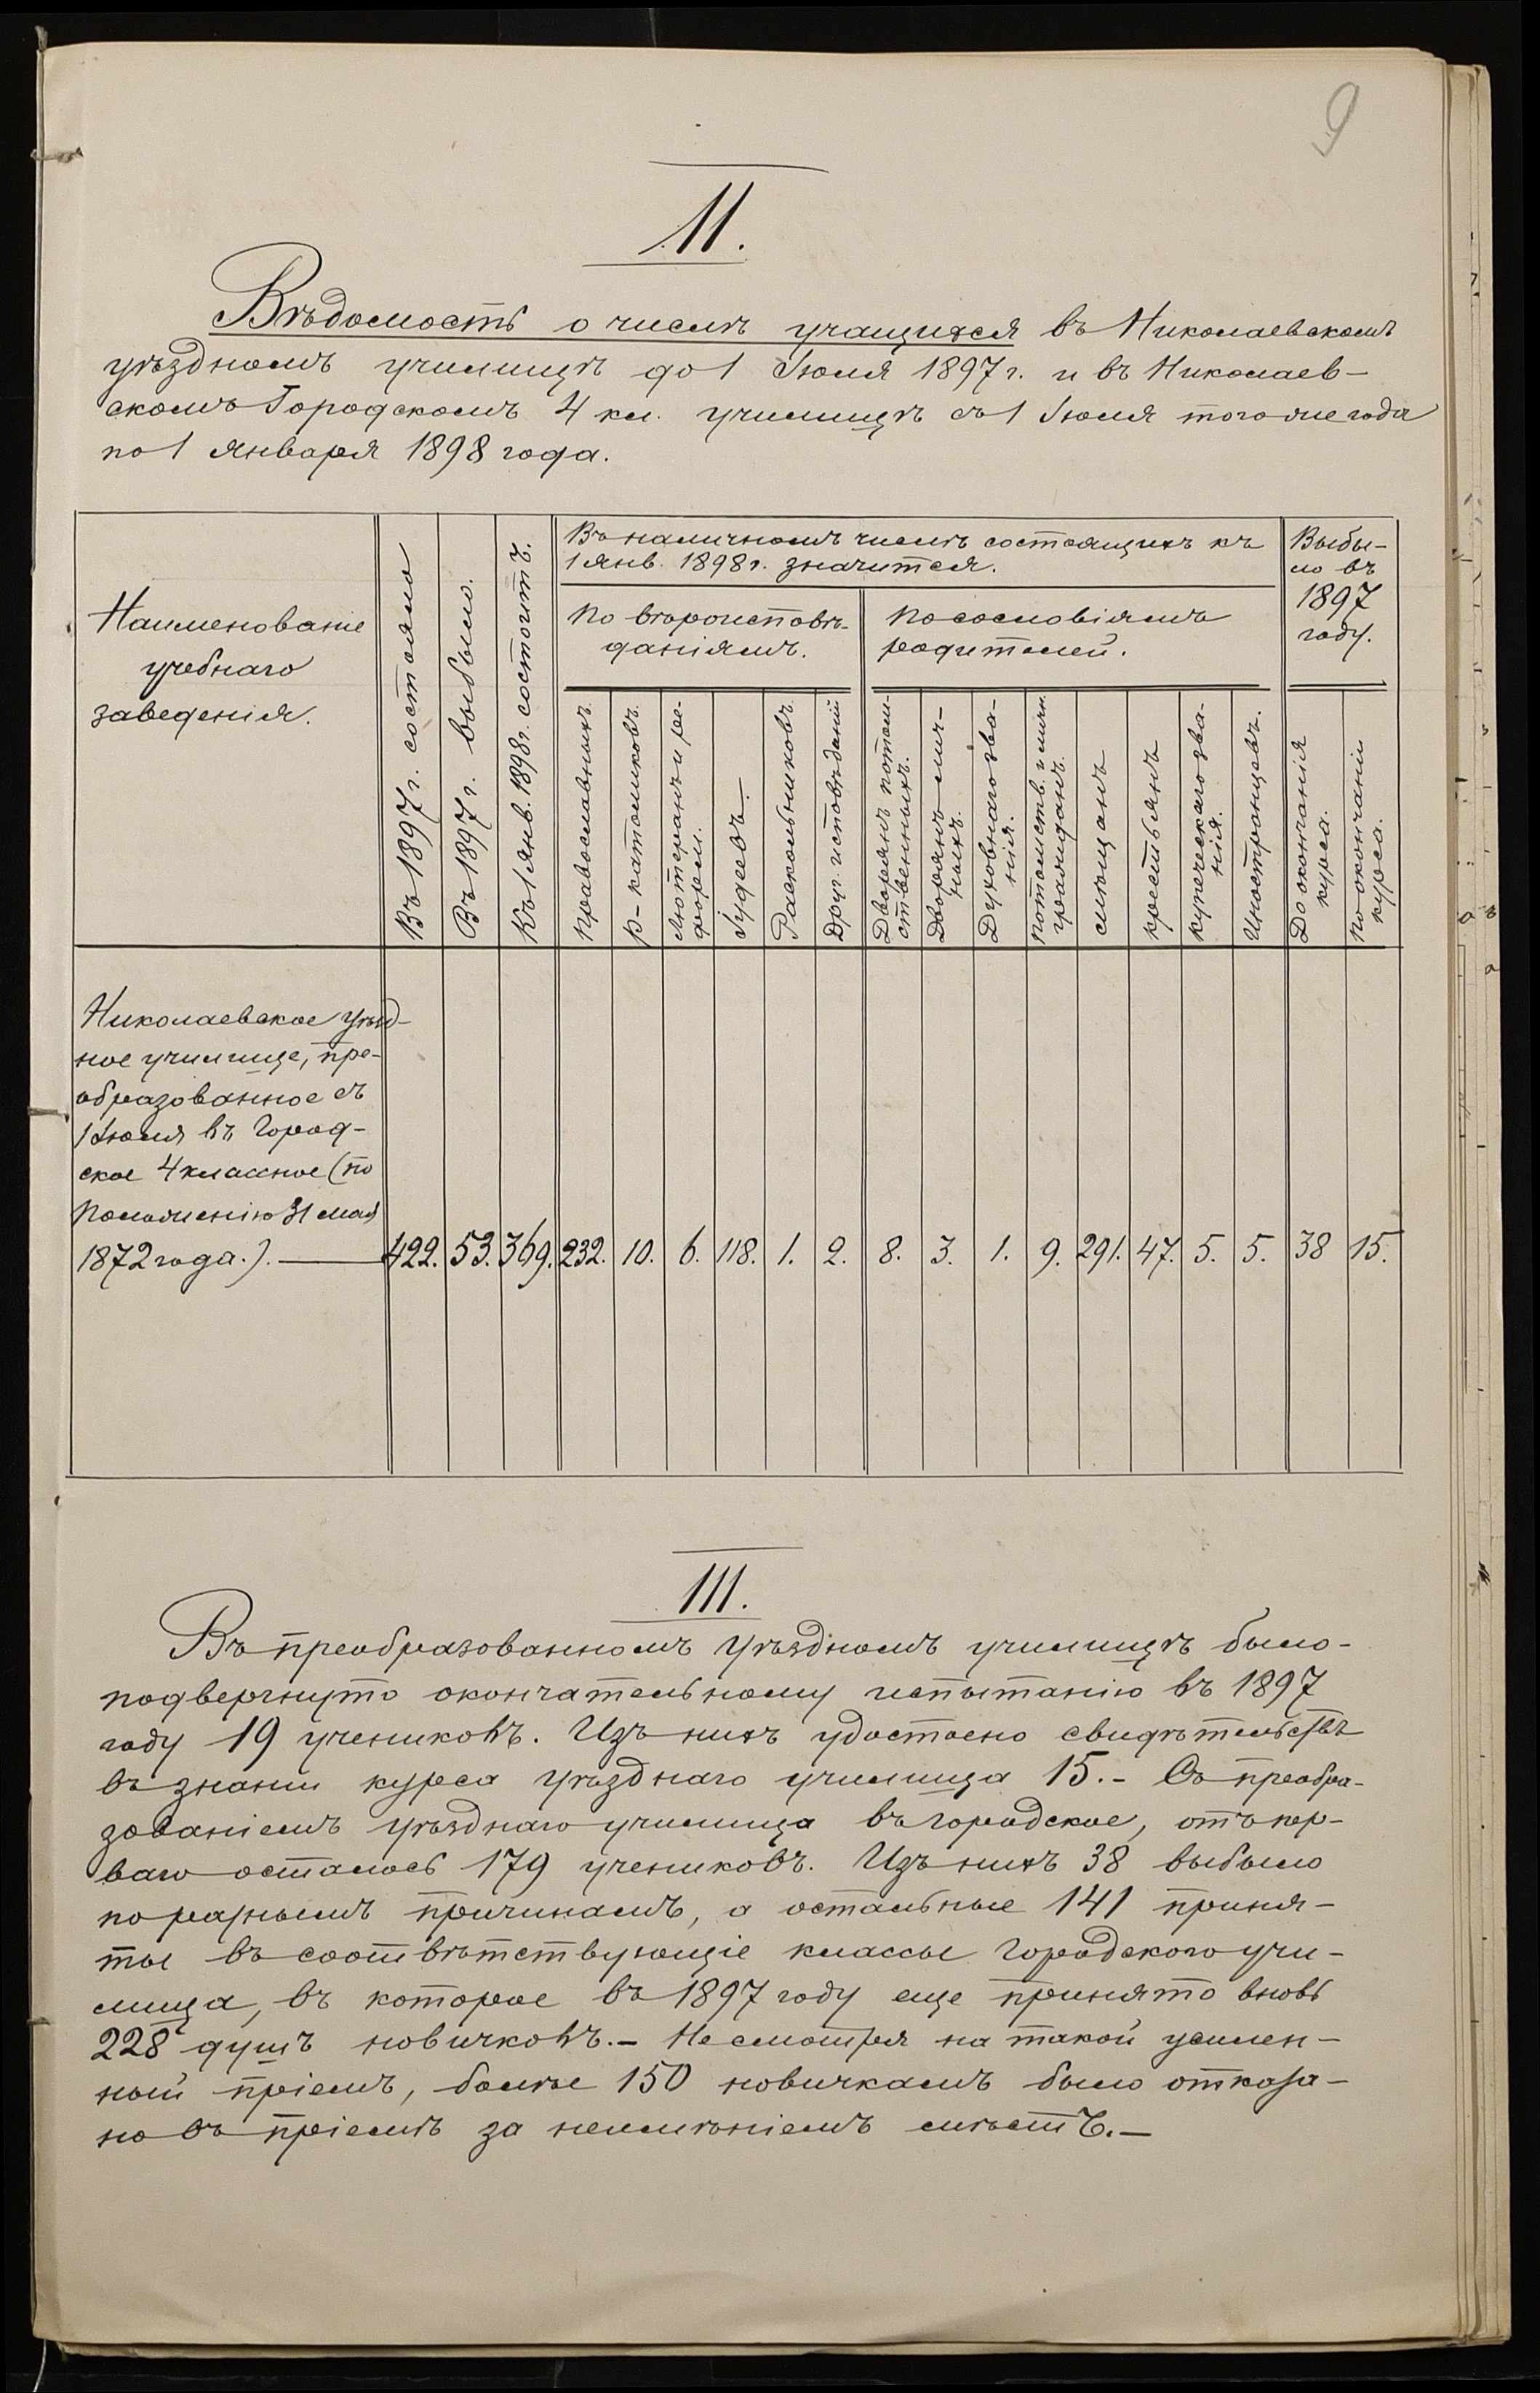 9
II.
Вѣдомость о числѣ учащихся въ Николаевскомъ
уѣздномъ училищѣ до 1 Іюля 1897 г. и въ Николаев-
скомъ Городскомъ 4 кл. училищѣ съ 1 Іюля того же года
по 1 Января 1898 года.
Наименованіе
учебнаго
заведенія.
Въ 1897 г. состояло
Въ 1897 г. выбыло.
Къ 1 янв. 1898 г. состоитъ.
Въ наличномъ числѣ состоящихъ къ
1 янв. 1898 г. значится.
По вѣроисповѣ-
даніямъ.
По сословіямъ
родителей.
Выбы-
ло въ
1897
году.
Православныхъ.
Р-католиковъ.
Лютеранъ и ре-
форм.
Іудеевъ.
Раскольниковъ
Друг. исповѣданій
Дворянъ потом-
ственныхъ.
Дворянъ лич-
ныхъ.
Духовнаго зва-
нія.
Потомств. и личн.
гражданъ.
Мѣщанъ
Крестьянъ
Купеческаго зва-
нія.
Иностранцевъ.
До окончанія
курса.
По окончаніи
курса.
Николаевское уѣзд-
ное училище, пре-
образованное съ
1 Іюля въ Город-
ское 4 классное (по
Положенію 31 мая
1872 года.). — 422. 53. 369. 232. 10. 6. 118. 1. 2. 8. 3. 1. 9. 291. 47. 5. 5. 38 15.
III.
Въ преобразованномъ Уѣздномъ училищѣ было-
подвергнуто окончательному испытанію въ 1897
году 19 учениковъ. Изъ нихъ удостоено свидѣтельствъ
въ знаніи курса уѣзднаго училища 15.- Съ преобра-
зованіемъ уѣзднаго училища въ городское, отъ пер-
ваго осталось 179 учениковъ. Изъ нихъ 38 выбыло
по разнымъ причинамъ, а остальные 141 приня-
ты въ соотвѣтствующіе классы Городского учи-
лища, въ которое въ 1897 году еще принято вновь
228 душъ новичковъ.- Несмотря на такой усилен-
ный пріемъ, болѣе 150 новичкамъ было отказа-
но въ пріемѣ за неимѣніемъ мѣстъ.-